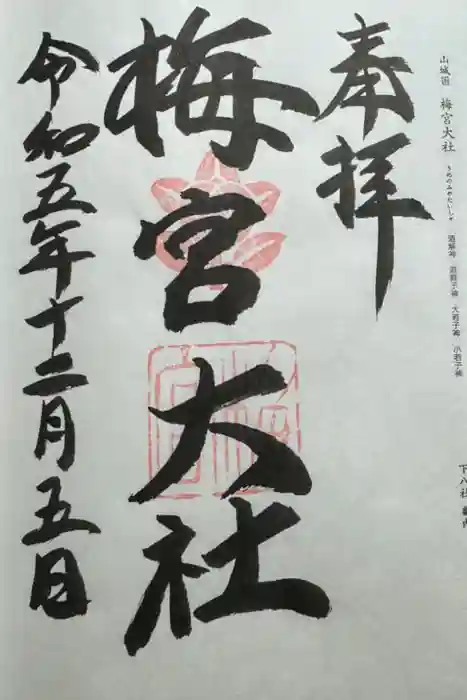 山城国 梅宮大社
うめのみやたいしゃ
酒解神 酒解子神 大若子神 小若子神
奉拝
梅宮大社
令和五年十二月五日